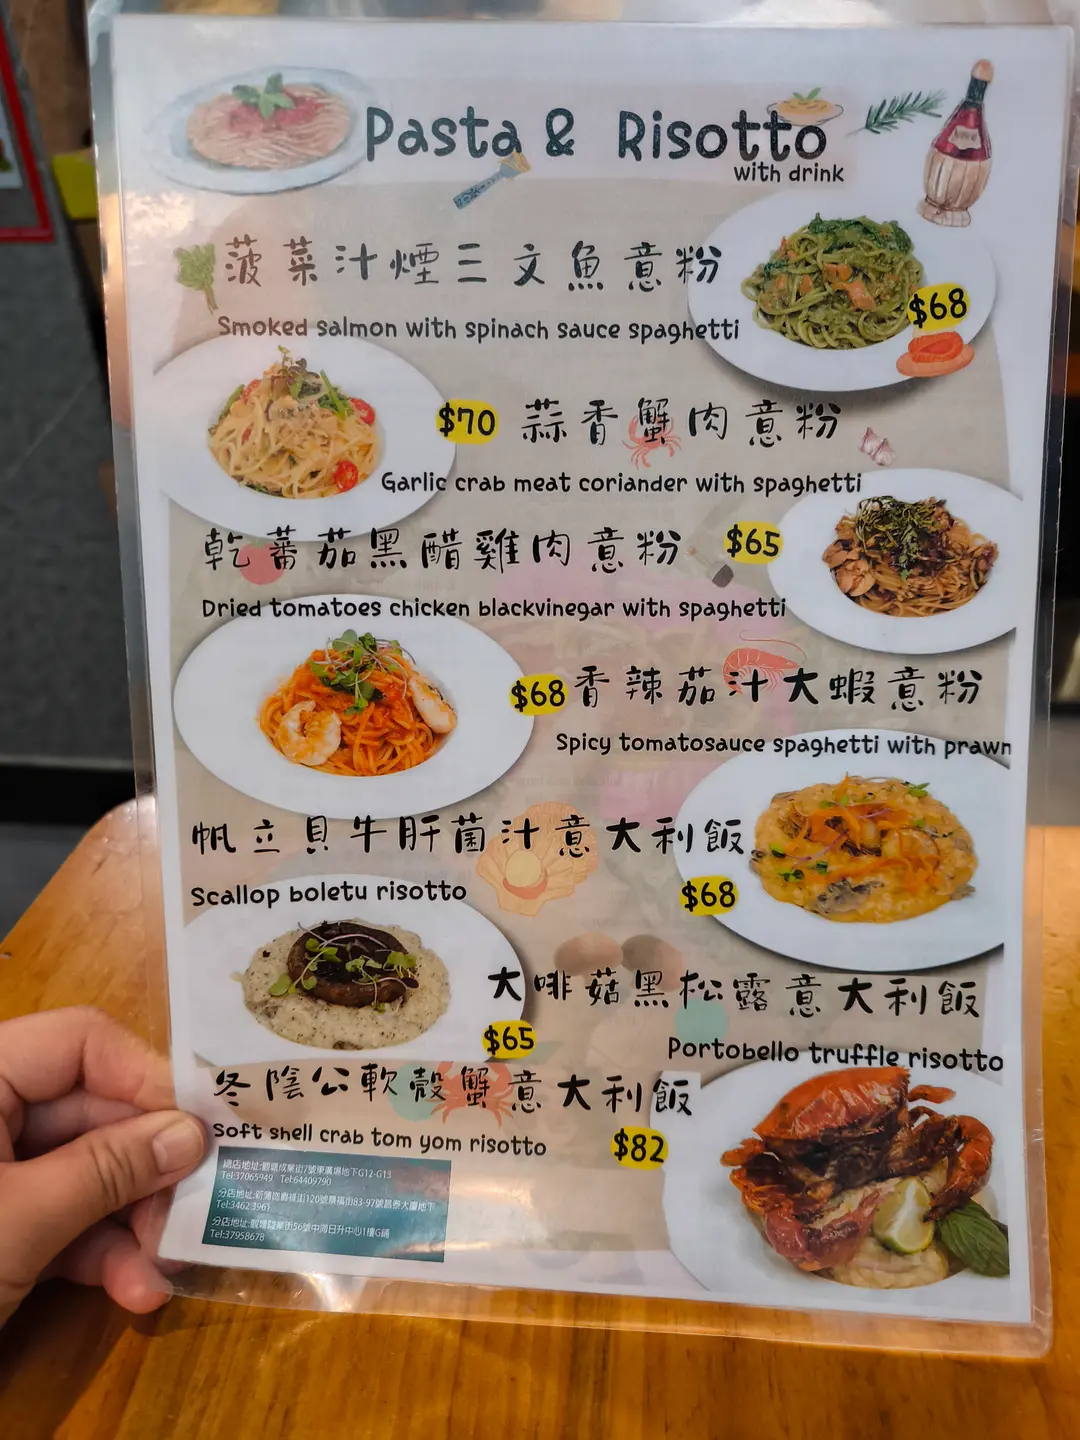 Pasta & Risotto
with drink
菠菜汁煙三文魚意粉
$68
Smoked salmon with spinach sauce spaghetti
$70 蒜香蟹肉意粉
Garlic crab meat coriander with spaghetti
乾蕃茄黑醋雞肉意粉 $65
Dried tomatoes chicken blackvinegar with spaghetti
$68 香辣茄汁大蝦意粉
Spicy tomatosauce spaghetti with prawn
帆立貝牛肝菌汁意大利飯
Scallop boletu risotto
$68
大啡菇黑松露意大利飯
$65
Portobello truffle risotto
冬陰公軟殼蟹意大利飯
Soft shell crab tom yom risotto
$82
總店地址:觀塘成業街7號東廣場地下G12-G13
Tel:37065949 Tel:64409790
分店地址:新蒲崗爵祿街120號景福街83-97號昌泰大廈地下
Tel:3462 3961
分店地址:觀塘駿業街56號中海日升中心1樓G舖
Tel:37958678